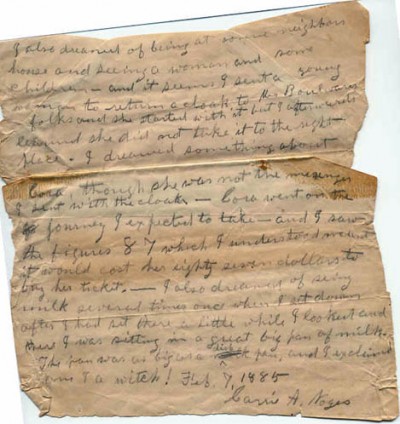 I also dreamed of being at some neighbors
house and seeing a woman and some
children - and it seems I sent a young
to return a cloak to Mr.
folks and she started with it but I afterwards
learned she did not take it to the right
place. I dreamed something about
Cora, though she was not the messenger
I sent with the cloak - Cora went on the
journey I expected to take - and I saw
the figures 87 which I understood meant
it would cost her eighty seven dollars to
buy her ticket. - I also dreamed of seeing
milk several times once when I sat down
after I had set there a little while I looked and
I was sitting in a great big pan of milk.
The pan was as big as a pan, and I exclaimed
am I a witch! Feb. 7, 1885
Carrie A. Noyes